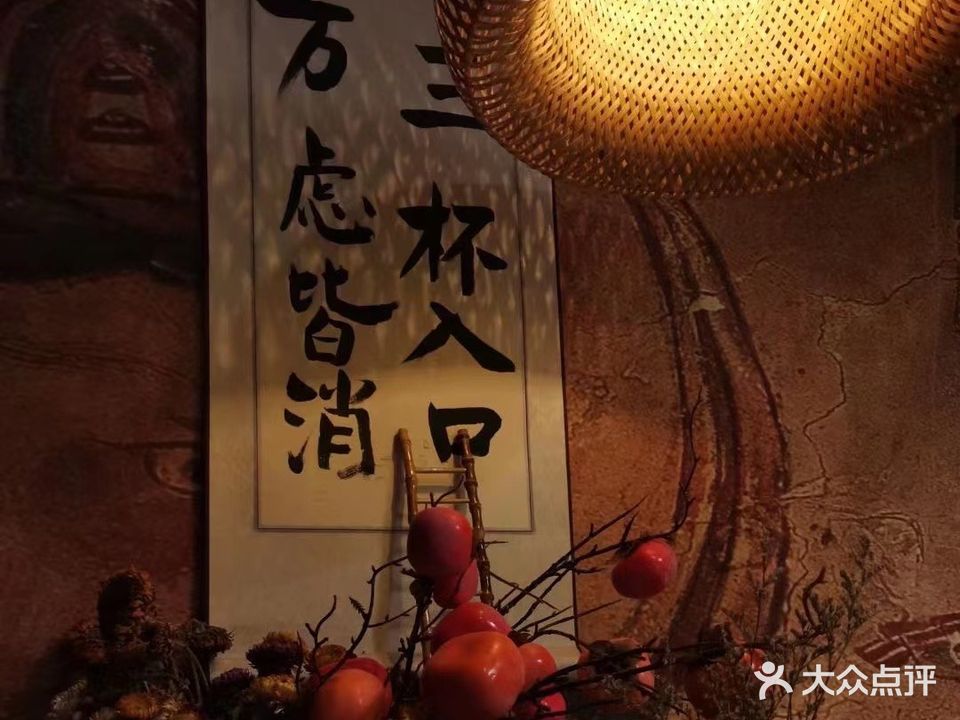 三杯入口
万虑皆消
大众点评